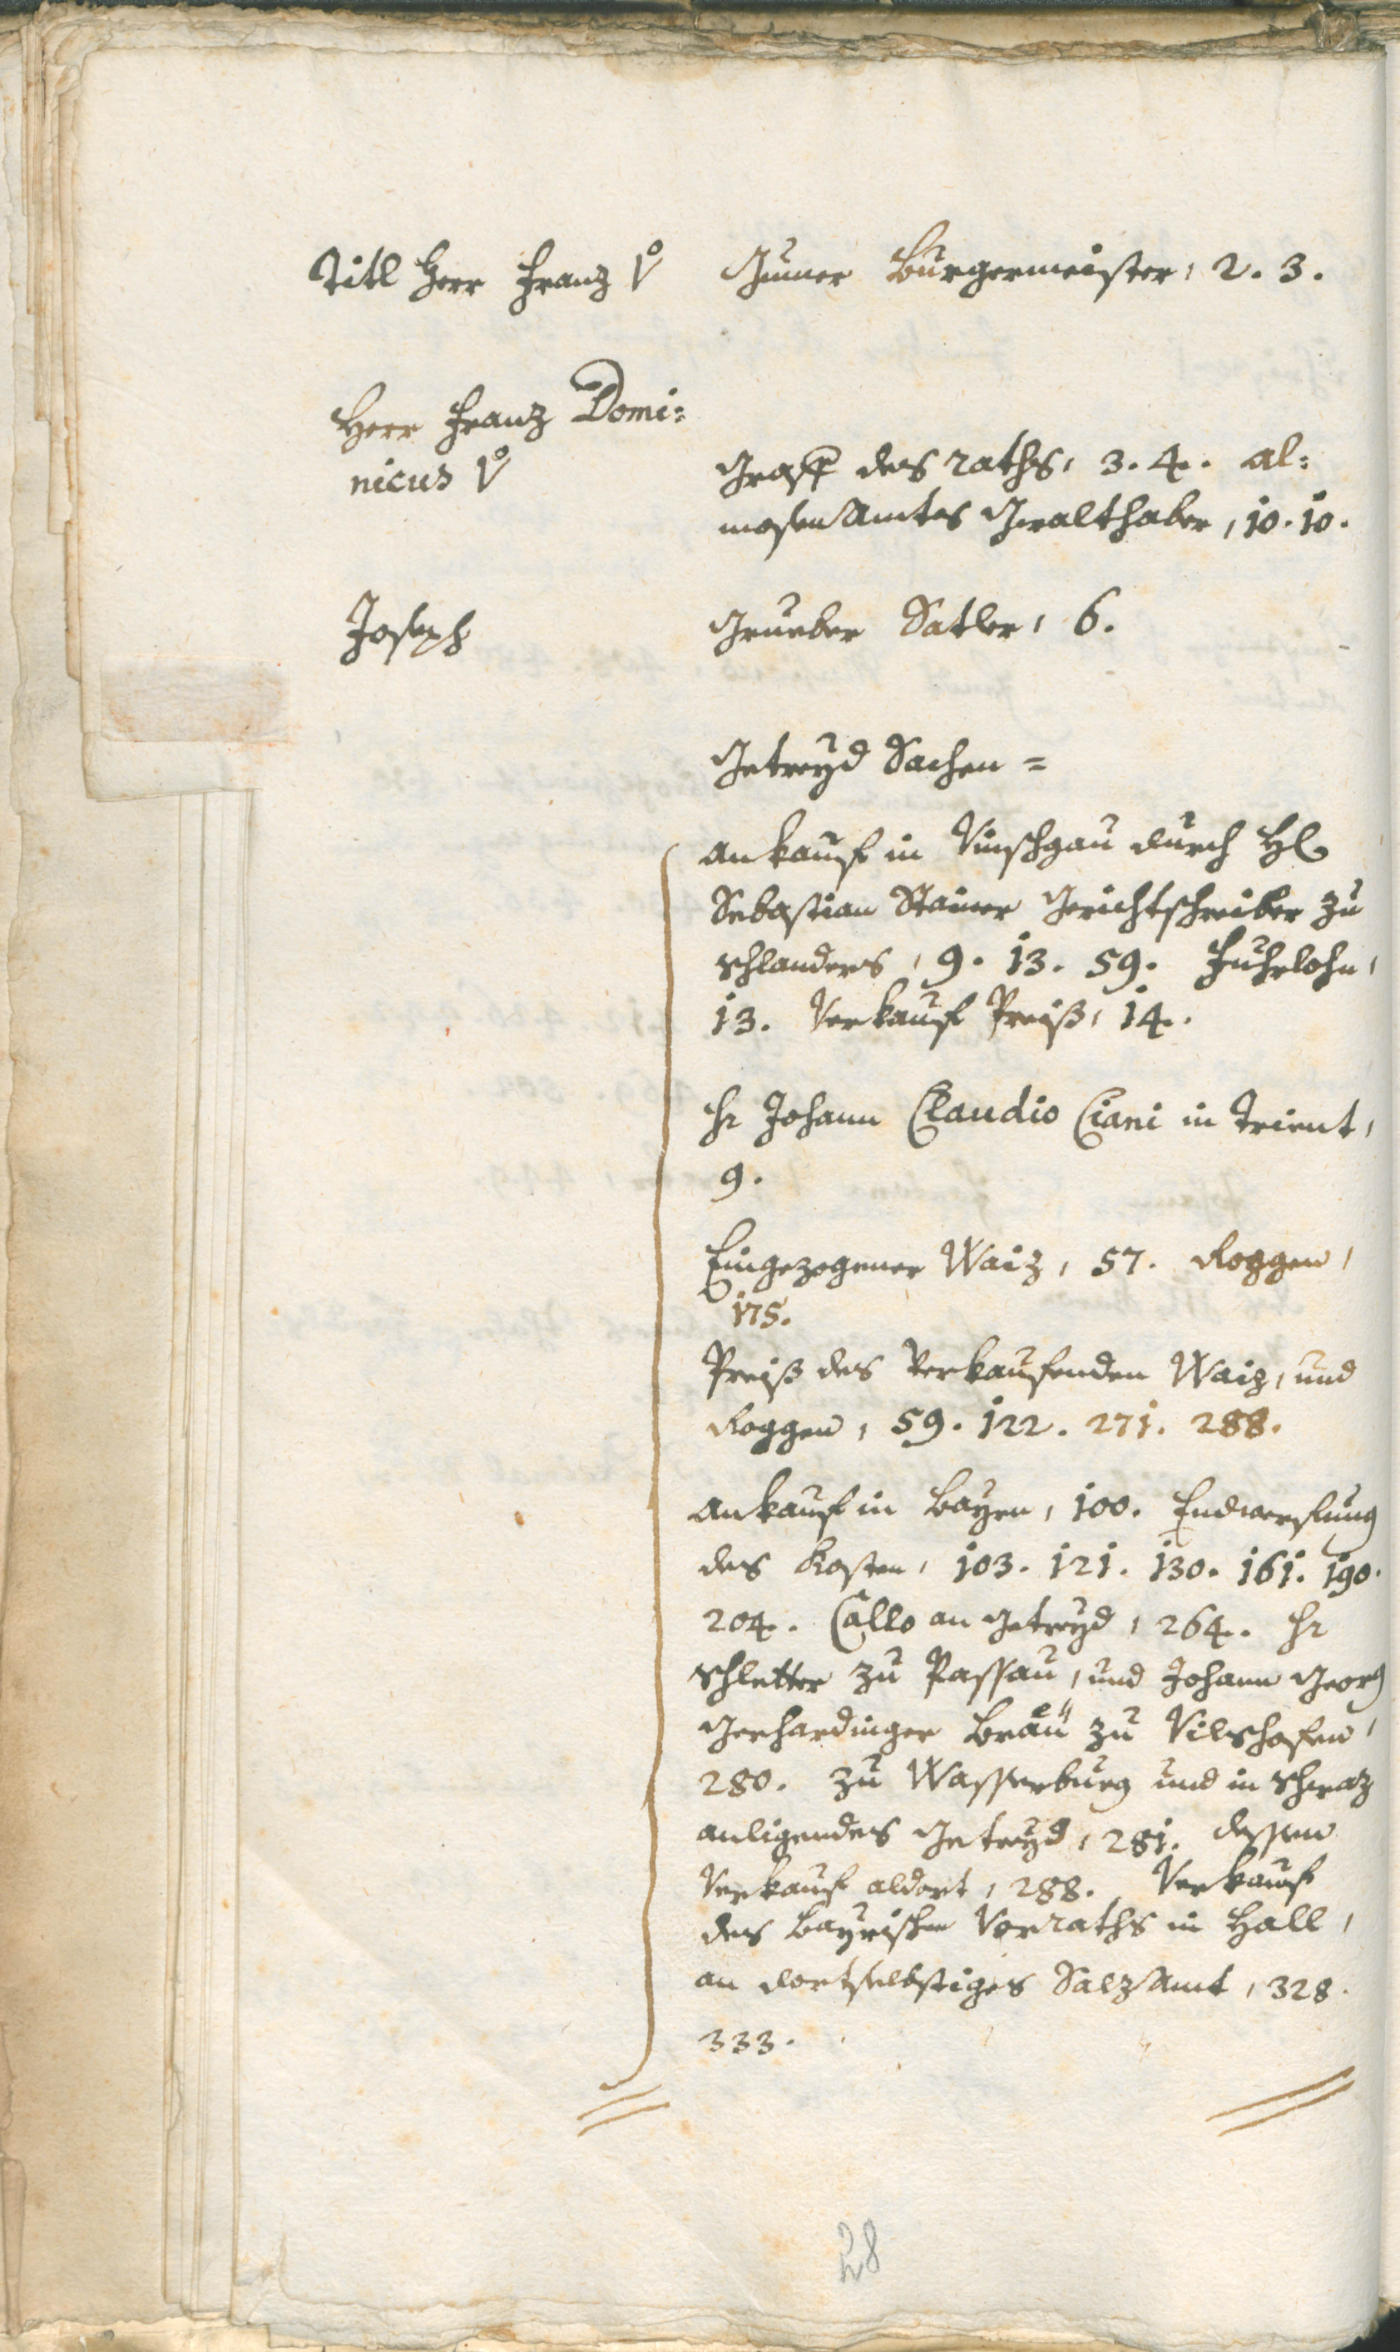 Titl Herr Franz V° Gumer Burgermeister, 2. 3.
Herr Franz Domi=
nicus V° Graff des raths, 3. 4. al=
mosen Amtes Gwalthaber, 10. 10.
Joseph Grueber Satler, 6.
Getreyd Sachen =
Ankauf in Vinschgau durch H
Sebastian Stainer Gerichtschreiber zu
Schlanders, 9. 13. 59. Fuhrlohn,
13. Verkauf Preiß, 14.
Hr Johann Claudio Ciani in Trient,
9.
Eingezogener Waiz, 57. Roggen,
175.
Preiß des Verkaufenden Waiz, und
Roggen, 59. 122. 271. 288.
Ankauf in Bayrn, 100. Endwerfung
des Kosten, 103. 121. 130. 161. 190.
204. Callo an Getreyd, 264. Hr
Schletter zu Passau, und Johann Georg
Gerhardinger Bräu zu Vilshofen,
280. zu Wasserburg und in Schwaz
anligendes Getreyd, 281. dessen
Verkauf aldort, 288. Verkauf
des Bayrischen Vorraths in Hall,
an dortselbstiges Salz Amt, 328.
333.
28